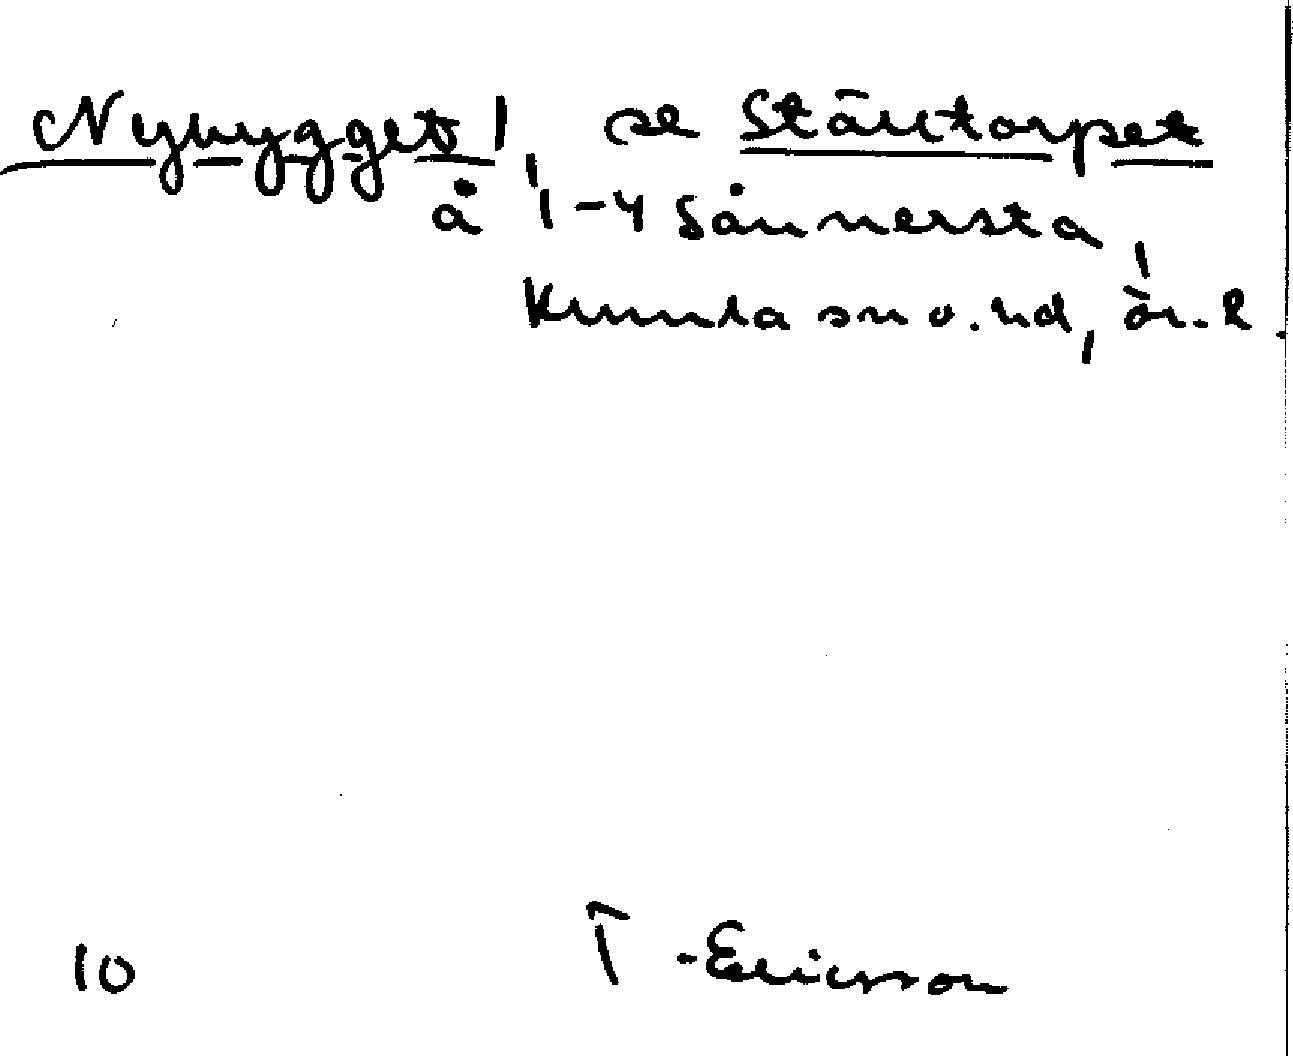 Nybygget 1, se Ståltorpet
å 1-4 Sånnersta,
Kumla sn o. hd, ör. l.
10 T. Ericsson